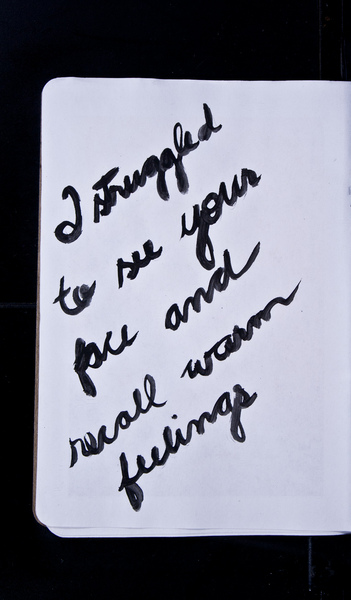 I struggled
to see your
face and
recall warm
feelings